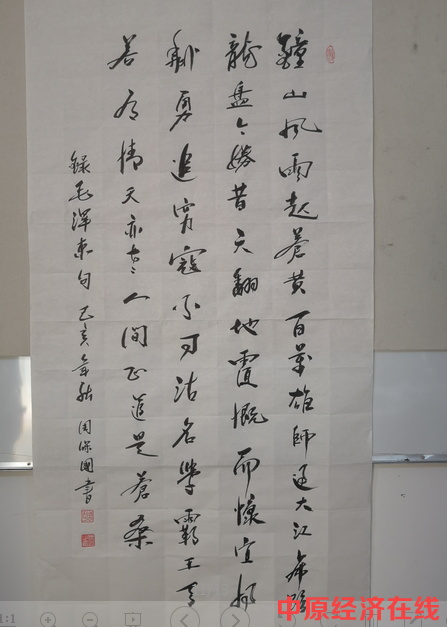 鐘山風雨起蒼黄百萬雄師過大江虎踞
龍盤今勝昔天翻地覆慨而慷宜將
剩勇追窮寇不可沽名學霸王天
若有情天亦老人間正道是蒼桑
錄毛澤東句己亥年秋周保國書
1:1
中原经济在线